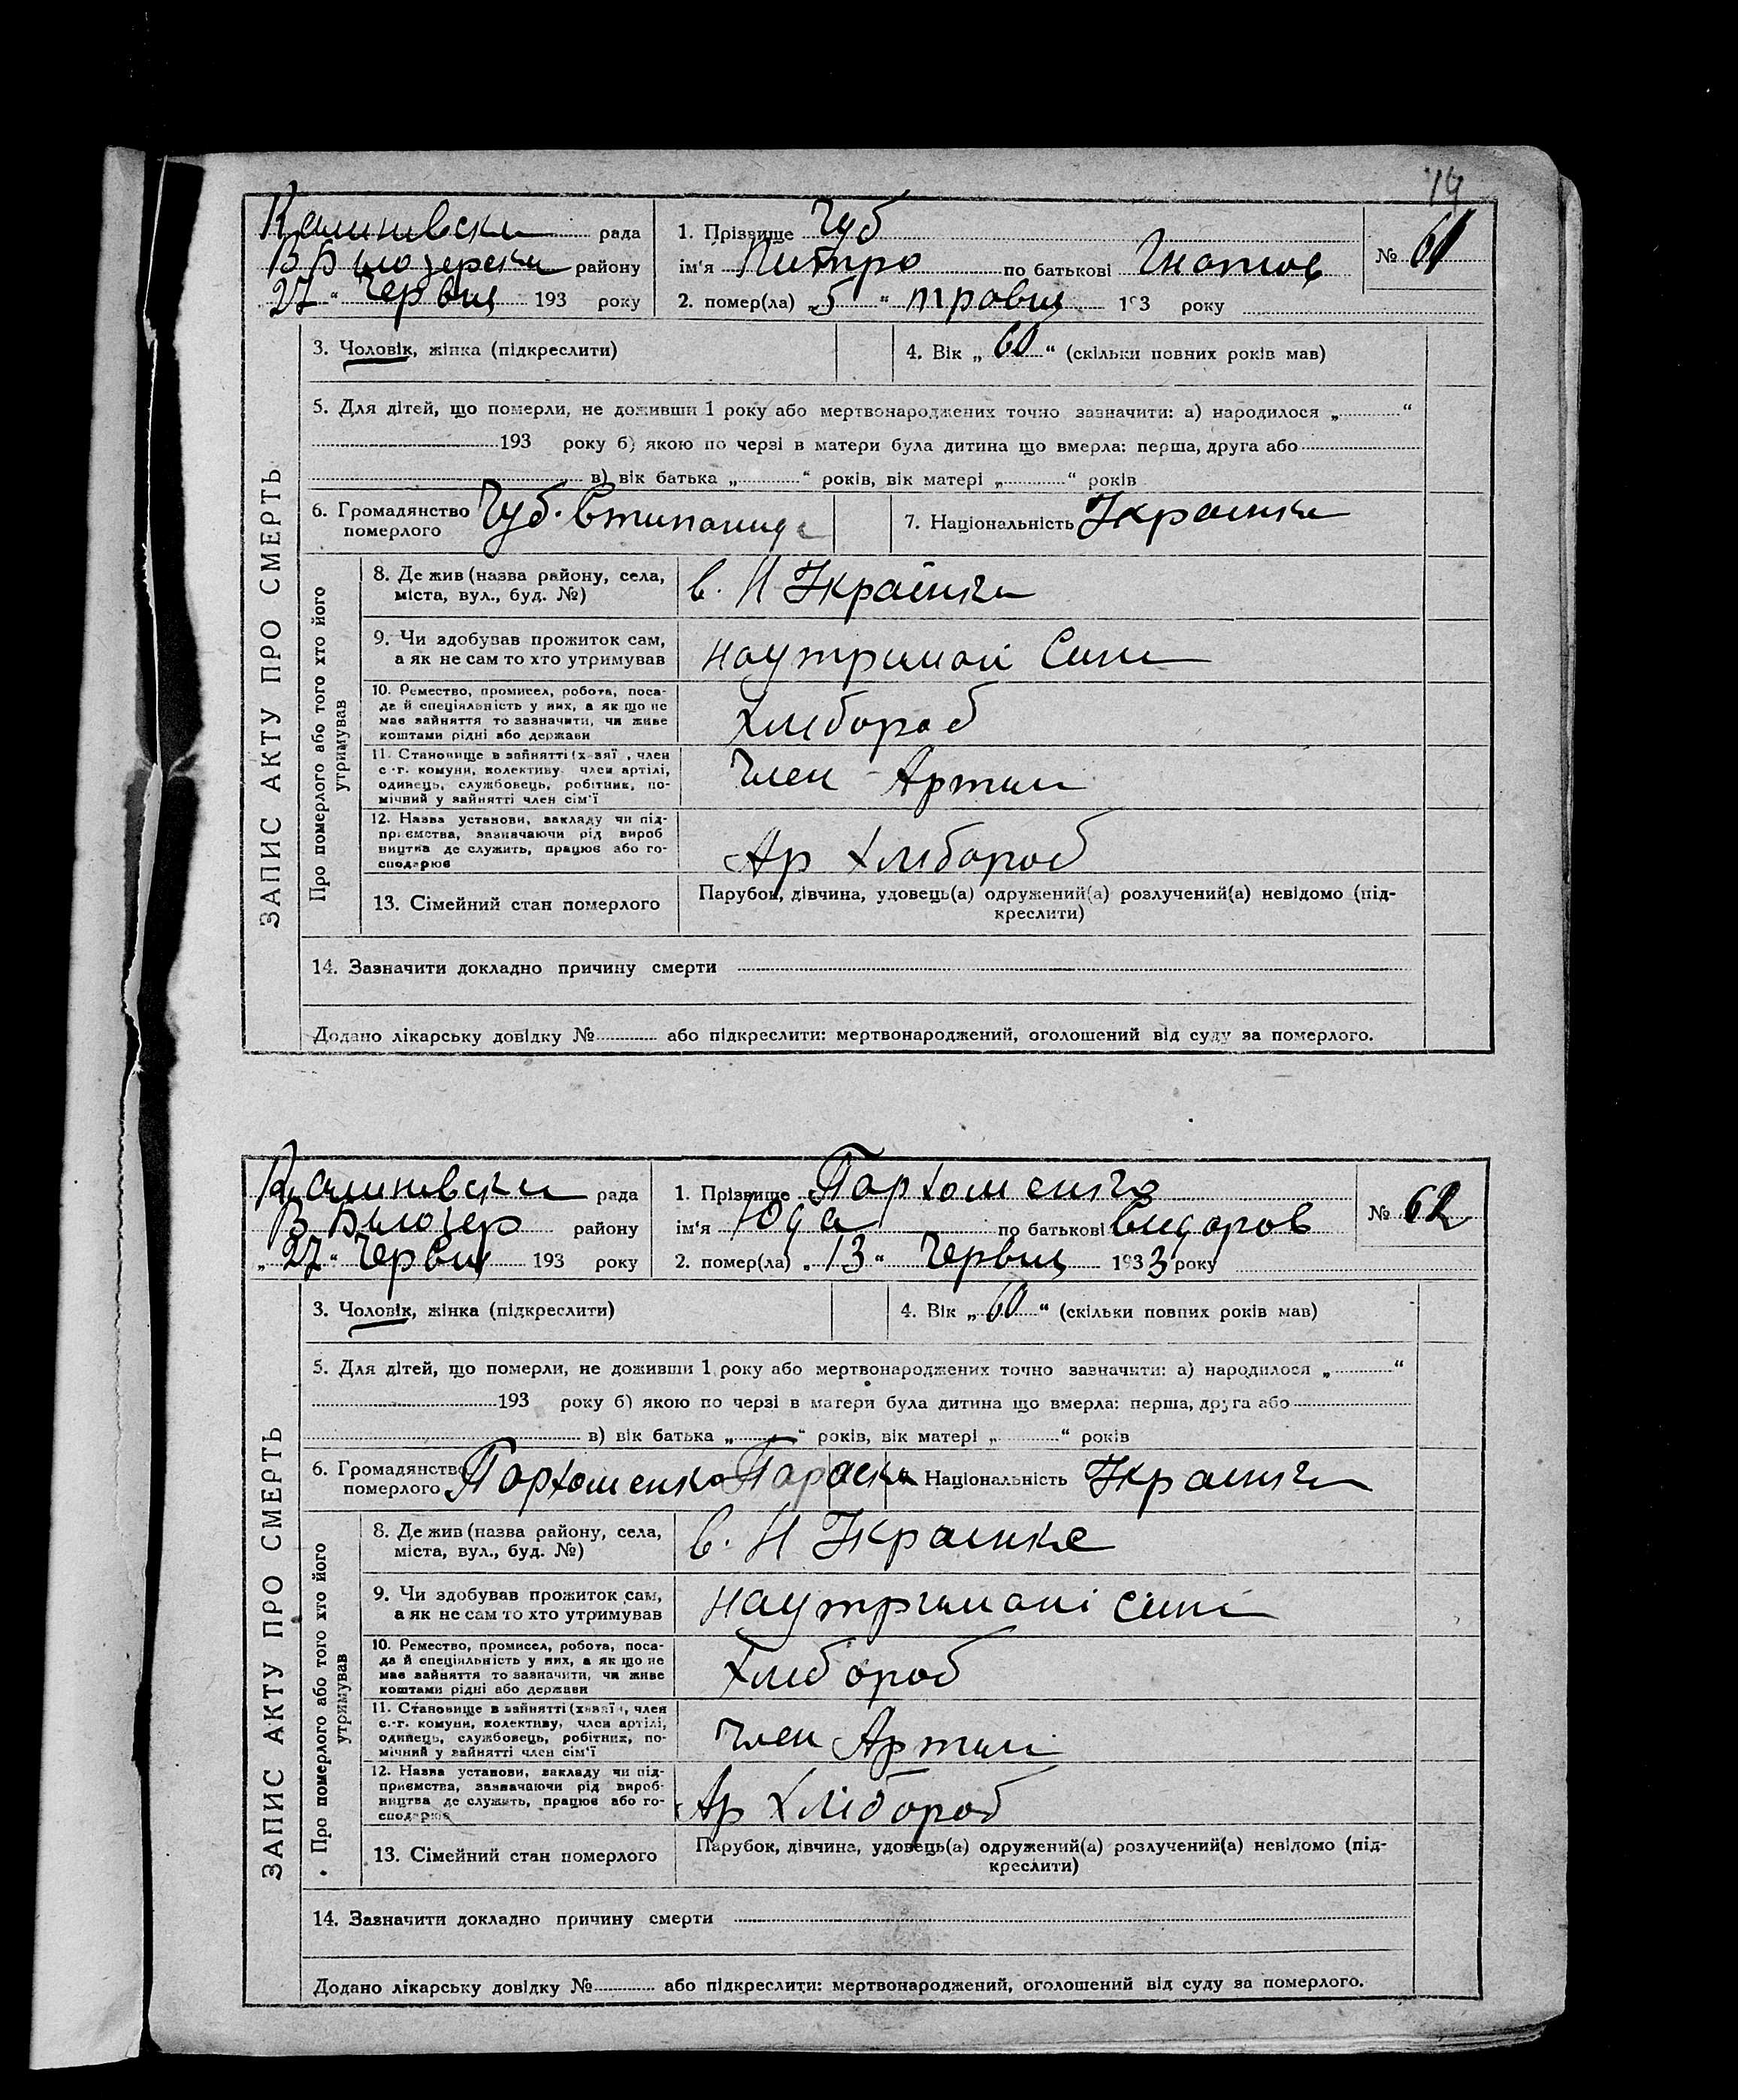 19
ЗАПИС АКТУ ПРО СМЕРТЬ
Калинивски рада
В Билозерски району
27 " Червця 193 року
1. Прізвище Чуб
ім'я Питро по батькові Гнатов
2. помер(ла) „5 " травця 193 року
№ 61
3. Чоловік, жінка (підкреслити)
4. Вік „ 60 " (скільки повних років мав)
5. Для дітей, що померли, не доживши 1 року або мертвонароджених точно зазначити: а) народилося „ "
193 року б) якою по черзі в матери була дитина що вмерла: перша, друга або
в) вік батька „ " років, вік матері „ " років
6. Громадянство померлого Чуб. Степанида
7. Національність Украинка
Про померлого або того хто його утримував
8. Де жив (назва району, села,
міста, вул., буд. №)
в. Н Украінка
9. Чи здобував прожиток сам,
а як не сам то хто утримував
наутримані Сини
10. Ремество, промисел, робота, поса-
да й спеціяльність у них, а як що не
має зайняття то зазначити, чи живе
коштами рідні або держави
Хлибороб
11. Становище в зайнятті (х-зяї , член
с.-г. комуни, колективу член артілі,
одинець, службовець, робітник, по-
мічний у зайнятті член сім'ї
Член Артили
12. Назва установи, закладу чи під-
приємства, зазначаючи рід вироб
ництва де служить, працює або го-
сподарює
Ар Хлибороб
13. Сімейний стан померлого
Парубок, дівчина, удовець(а) одружений(а) розлучений(а) невідомо (під-
креслити)
14. Зазначити докладно причину смерти
Додано лікарську довідку № або підкреслити: мертвонароджений, оголошений від суду за померлого.
ЗАПИС АКТУ ПРО СМЕРТЬ
Калинивски рада
В Билозер району
„ 27 " Червця 193 року
1. Прізвище Пархоменко
ім'я Юда по батькові Сидоров
2. помер(ла) „ 13 " Червця 1933 року
№ 62
3. Чоловік, жінка (підкреслити)
4. Вік „ 60 " (скільки повних років мав)
5. Для дітей, що померли, не доживши 1 року або мертвонароджених точно зазначити: а) народилося „ "
193 року б) якою по черзі в матери була дитина що вмерла: перша, друга або
в) вік батька „ " років, вік матері „ " років
6. Громадянство померлого Пархоменко Параска
Національність Украинка
Про померлого або того хто його утримував
8. Де жив (назва району, села,
міста, вул., буд. №)
в. Н Украинке
9. Чи здобував прожиток сам,
а як не сам то хто утримував
наутримані сині
10. Ремество, промисел, робота, поса-
да й спеціяльність у них, а як що не
має зайняття то зазначити, чи живе
коштами рідні або держави
Хлибороб
11. Становище в зайнятті (хазяї , член
с.-г. комуни, колективу, член артілі,
одинець, службовець, робітник, по-
мічний у зайнятті член сім'ї
Член Артили
12. Назва установи, закладу чи під-
приємства, зазначаючи рід вироб-
ництва де служить, працює або го-
сподарює
Ар Хлібороб
13. Сімейний стан померлого
Парубок, дівчина, удовець(а) одружений(а) розлучений(а) невідомо (під-
креслити)
14. Зазначити докладно причину смерти
Додано лікарську довідку № або підкреслити: мертвонароджений, оголошений від суду за померлого.